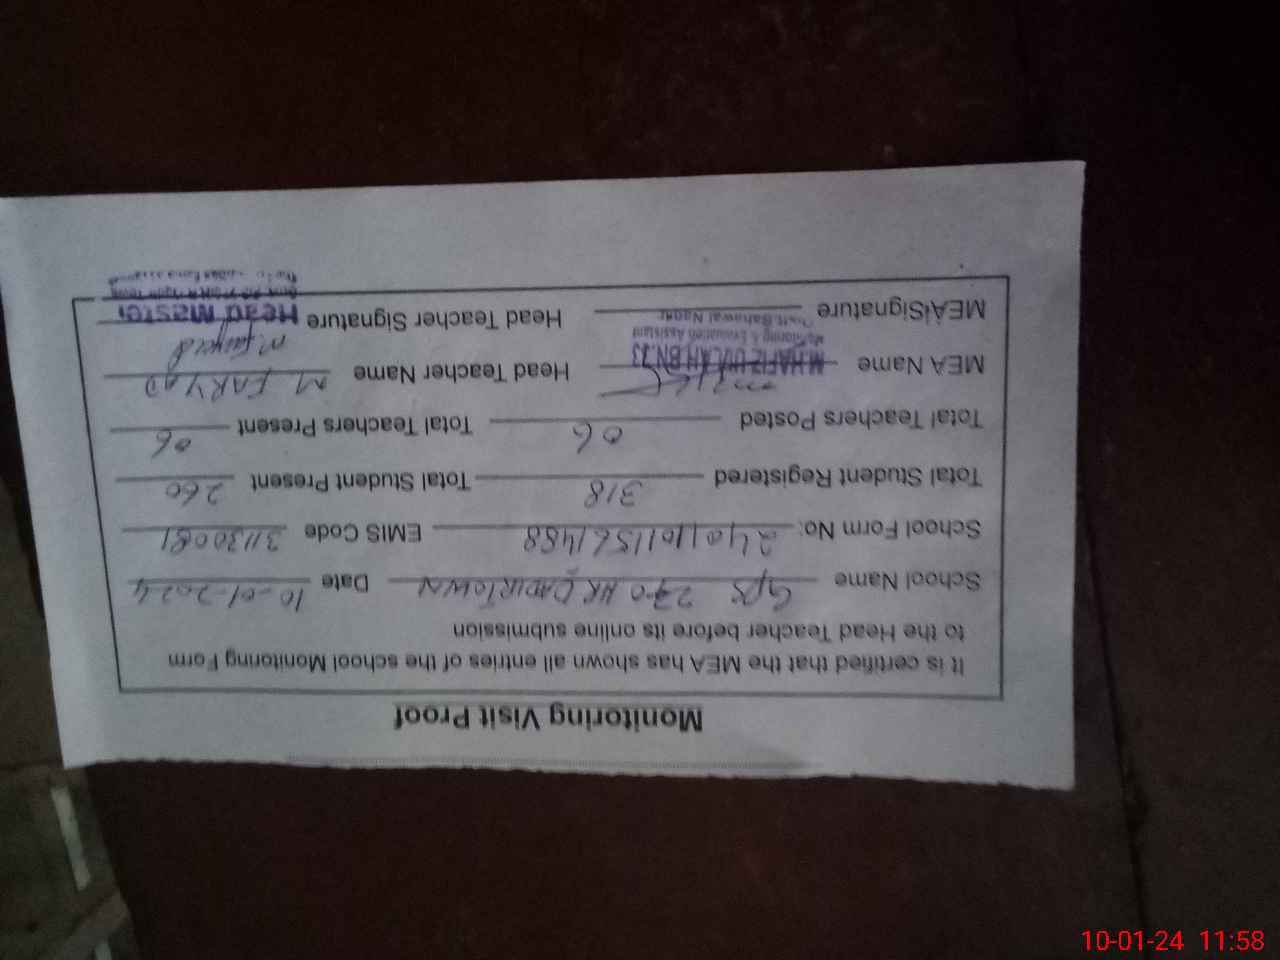 Monitoring Visit Proof
It is certified that the MEA has shown all entries of the school Monitoring Form
to the Head Teacher before its online submission
School Name GPS 270 HR QADIR TOWN Date 10-01-2024
School Form No: 24011011561488 EMIS Code 31130081
Total Student Registered 318 Total Student Present 260
Total Teachers Posted 06 Total Teachers Present 06
MEA Name M.HAFIZ ULLAH BN.23 Head Teacher Name M FARYAD
Monitoring & Evaluation Assistant
Distt. Bahawal Nagar
MEA Signature Head Teacher Signature
Head Master
10-01-24 11:58